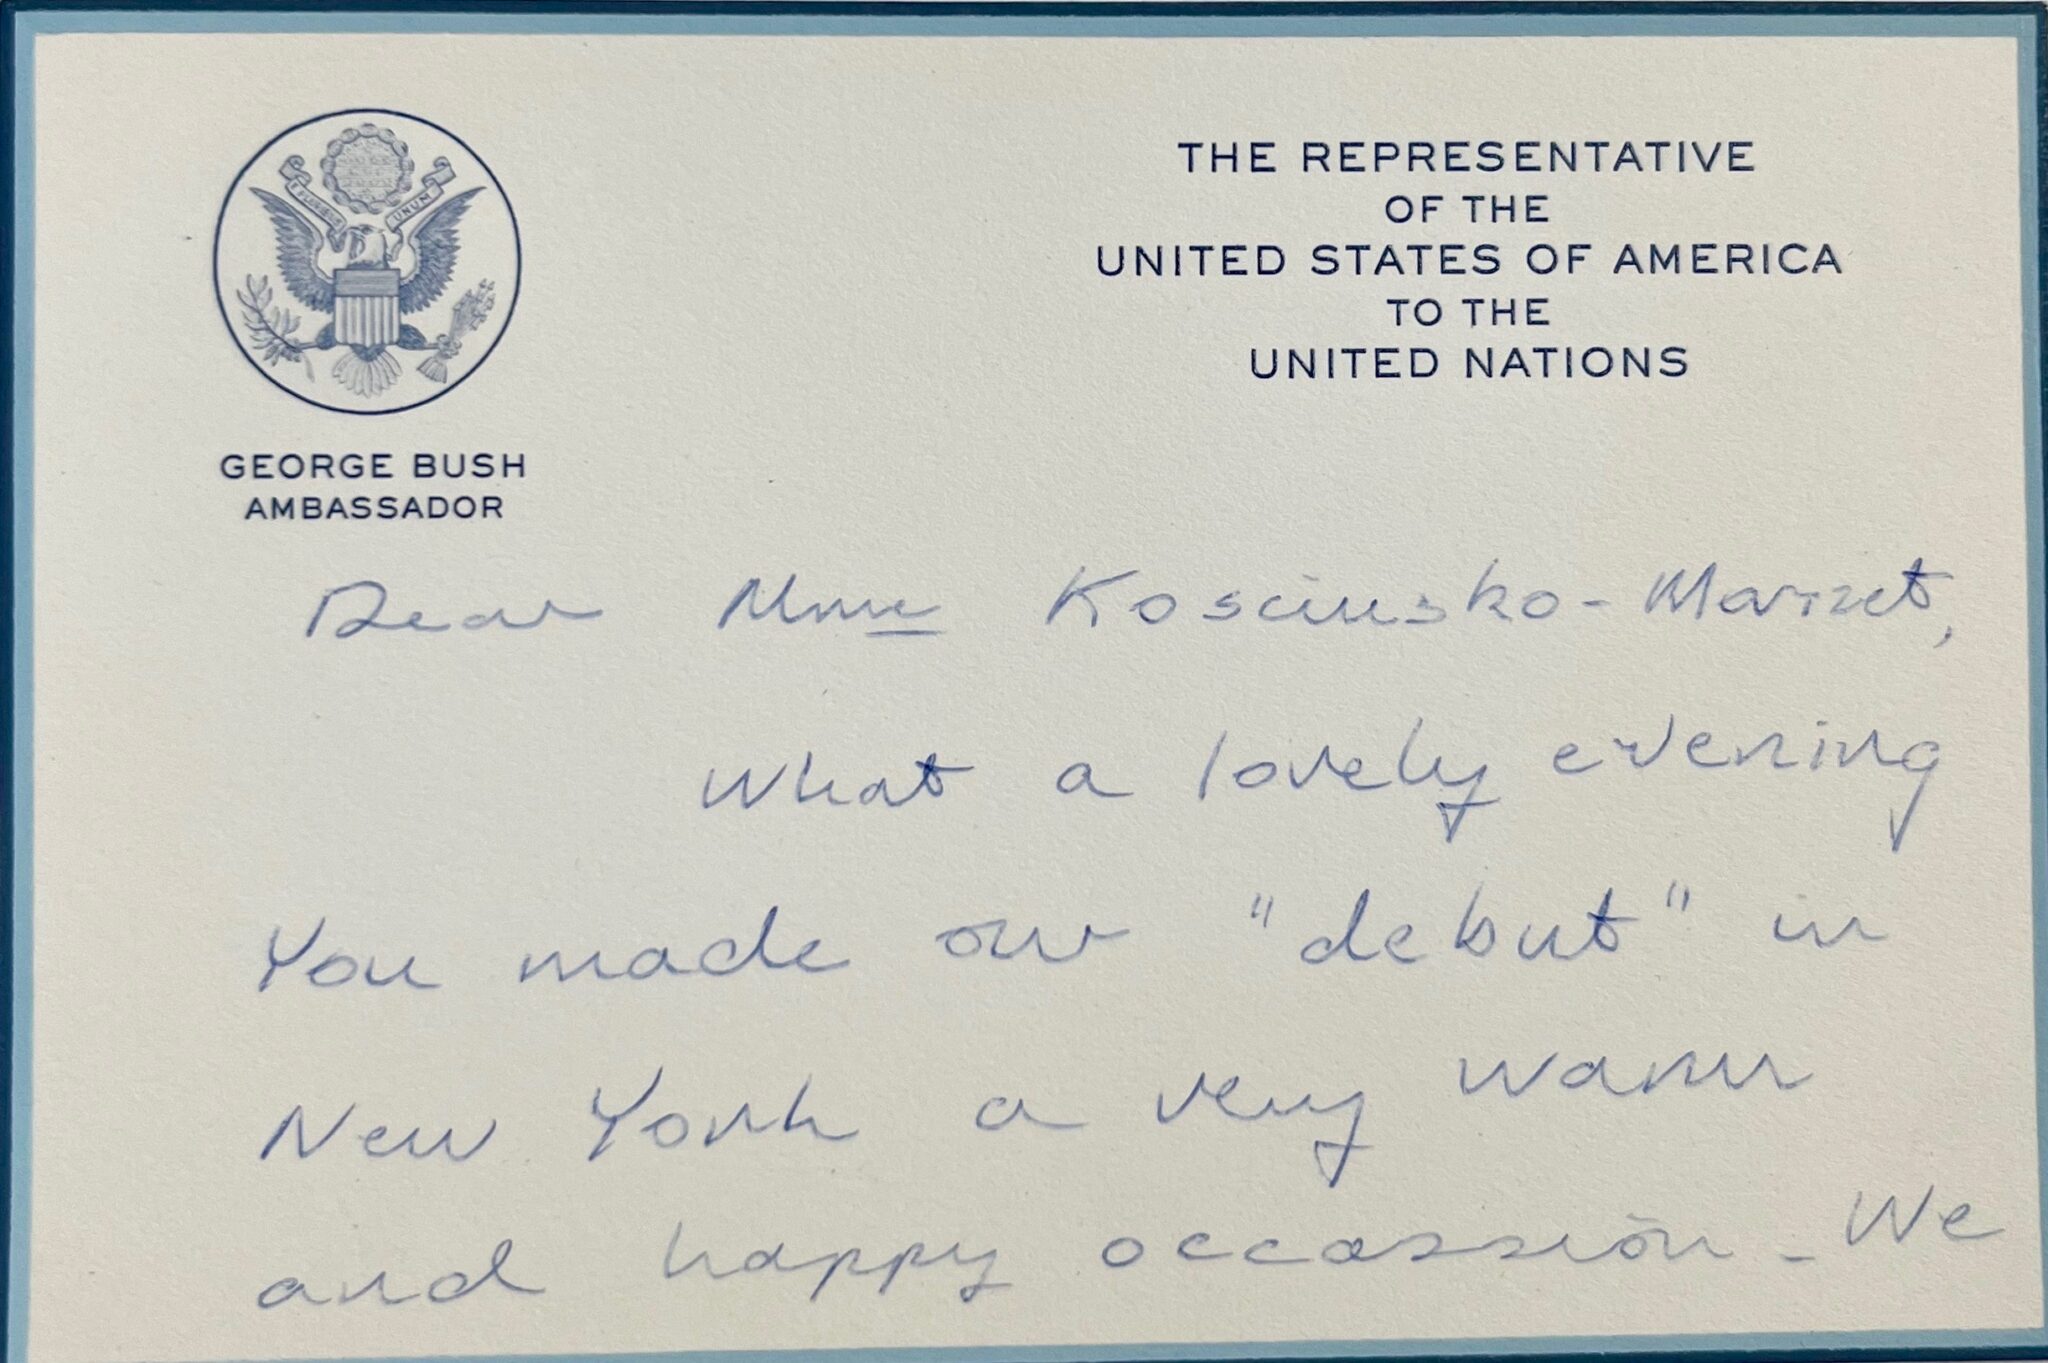 E PLURIBUS UNUM
GEORGE BUSH
AMBASSADOR
THE REPRESENTATIVE
OF THE
UNITED STATES OF AMERICA
TO THE
UNITED NATIONS
Dear Mme Kosciusko-Morizet,
What a lovely evening
You made our "debut" in
New York a very warm
and happy occassion - We